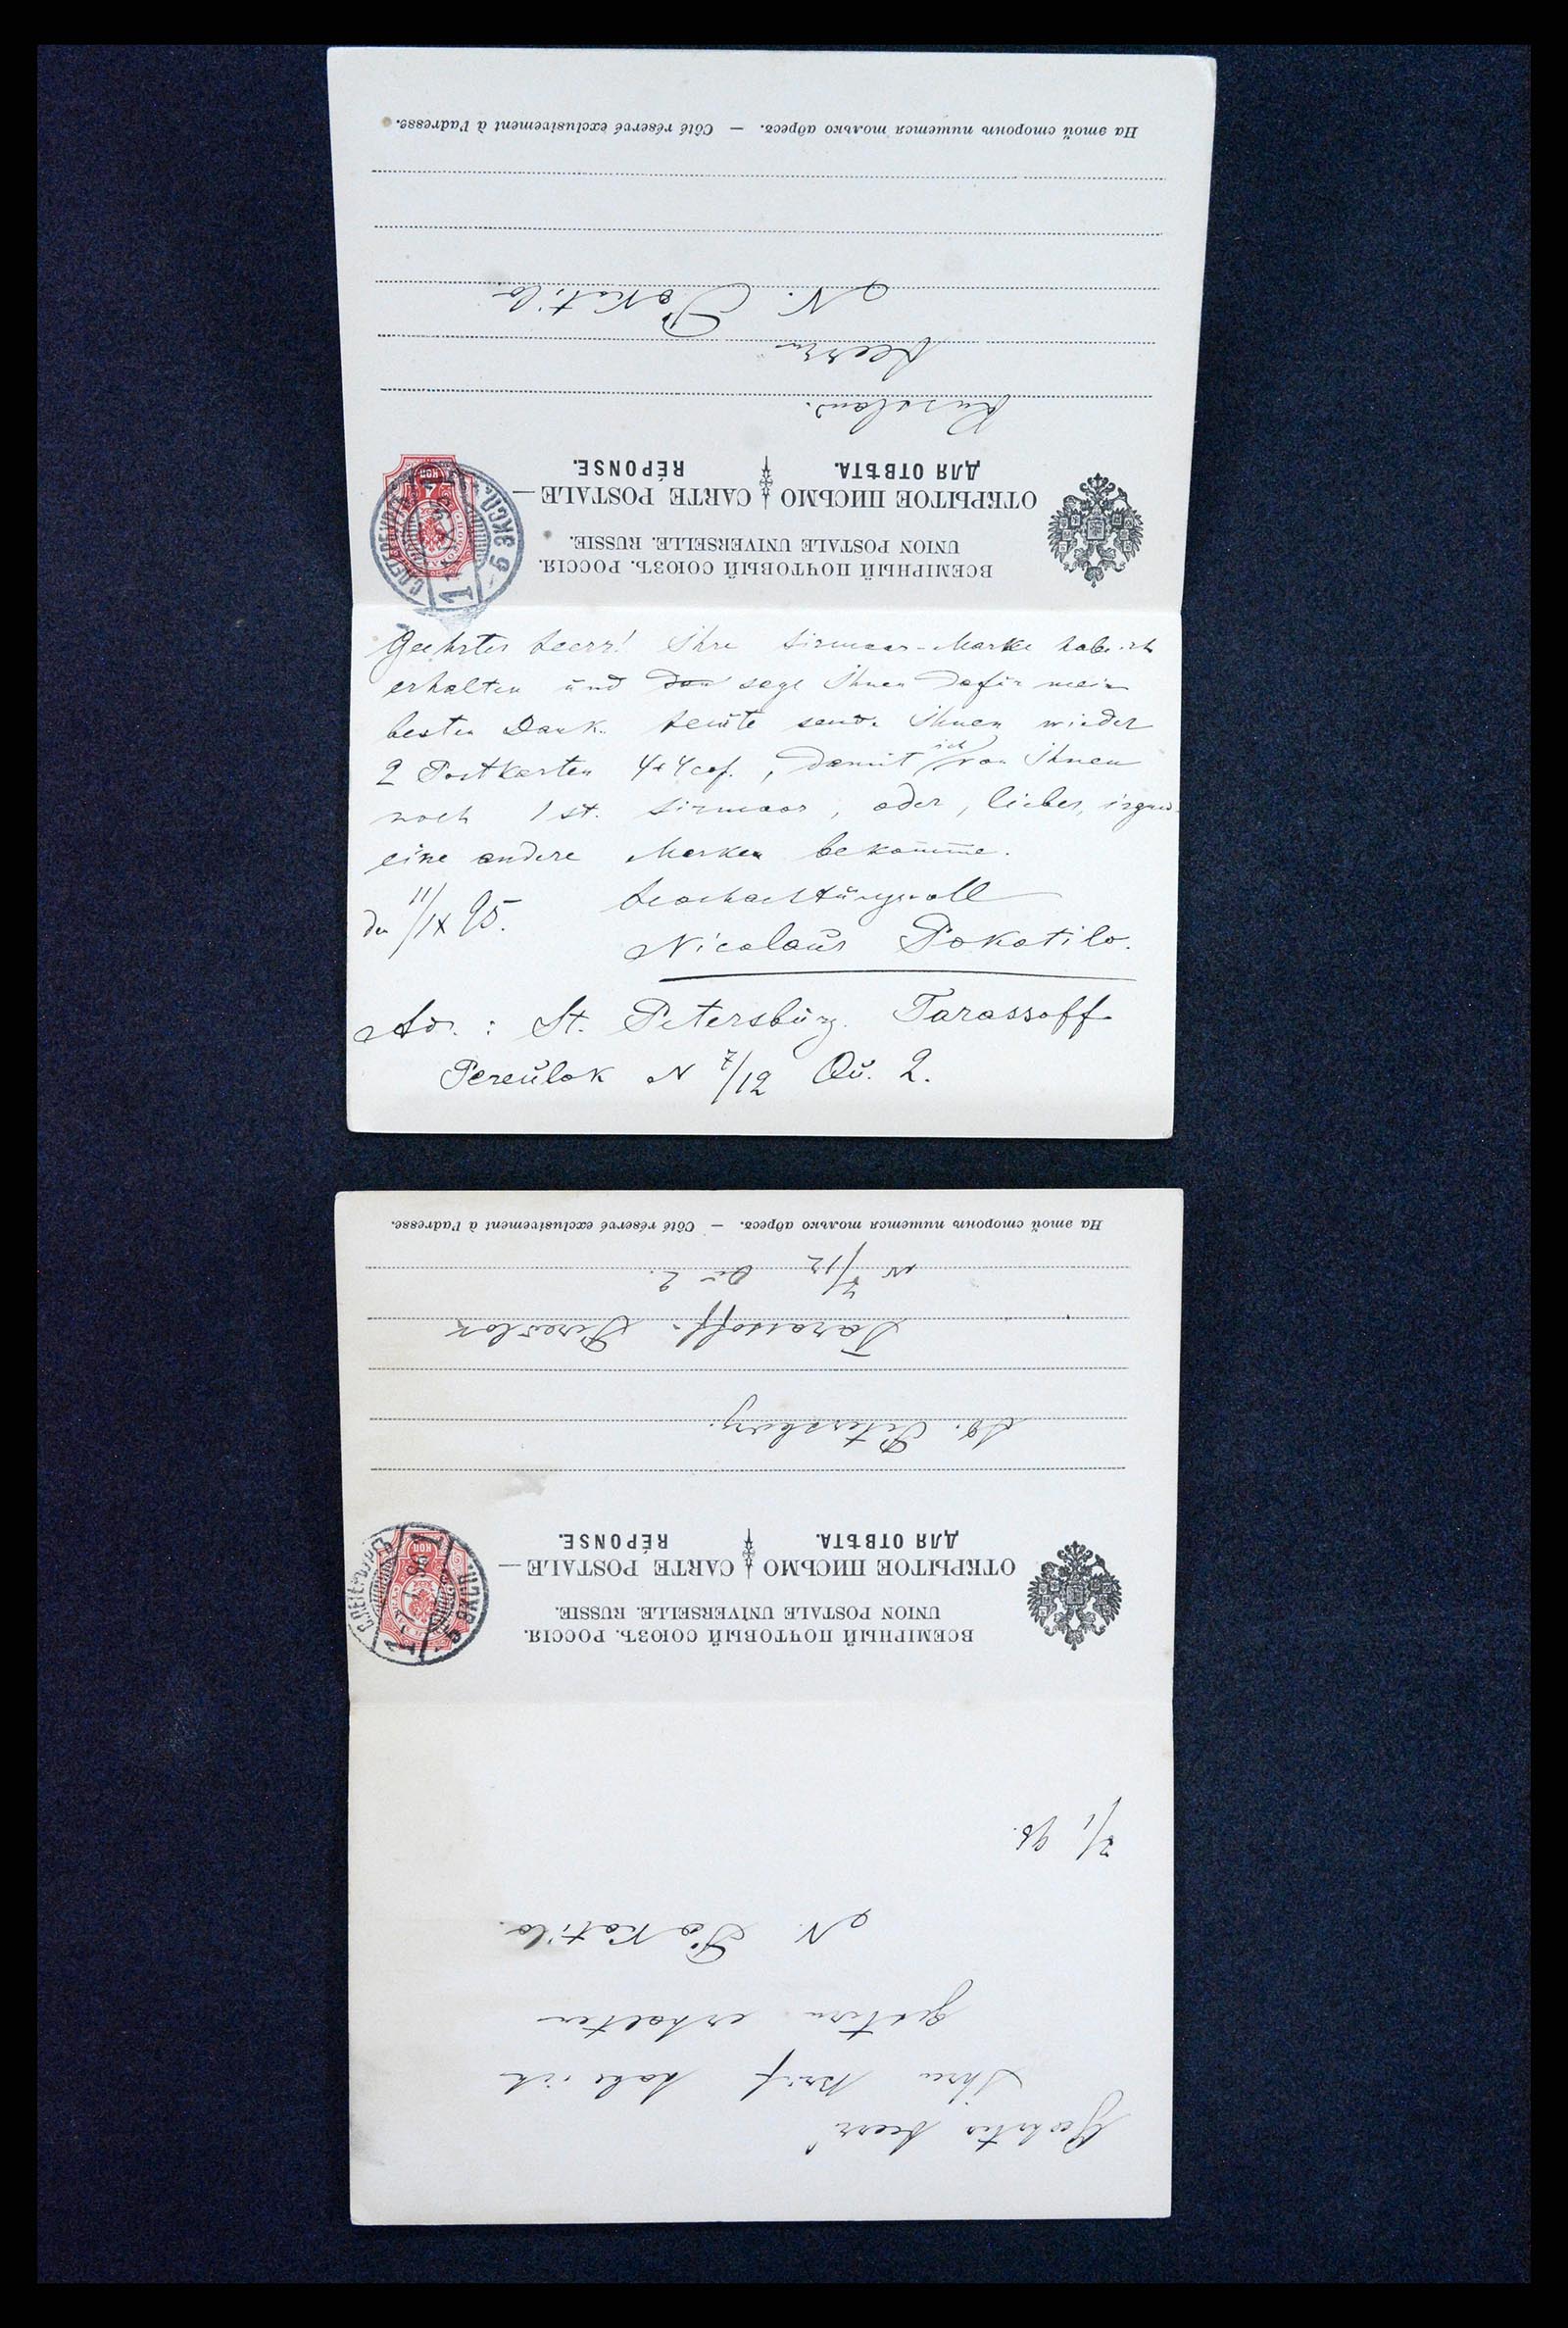 ВСЕМІРНЫЙ ПОЧТОВЫЙ СОЮЗЪ. РОССІЯ.
UNION POSTALE UNIVERSELLE. RUSSIE.
ОТКРЫТОЕ ПИСЬМО CARTE POSTALE
ДЛЯ ОТВѢТА. RÉPONSE.
Russland.
Herrn
N. Pokatilo.
На этой сторонѣ пишется только адресъ. — Côté réservé exclusivement à l'adresse.
Geehrter Herr! Ihre Sirmoor-Marke habe ich
erhalten und sage Ihnen dafür mein
besten Dank. Heute sende Ihnen wieder
2 Postkarten 4+4 cop., damit ich von Ihnen
noch 1 st. Sirmoor, oder, lieber, irgend
eine andere Marken bekomme.
Hochachtungsvoll
den 11/IX 95.
Nicolaus Pokatilo.
Adr.: St. Petersburg. Tarassoff
Pereulok N 7/12 Qu. 2.
ВСЕМІРНЫЙ ПОЧТОВЫЙ СОЮЗЪ. РОССІЯ.
UNION POSTALE UNIVERSELLE. RUSSIE.
ОТКРЫТОЕ ПИСЬМО CARTE POSTALE
ДЛЯ ОТВѢТА. RÉPONSE.
St. Petersburg.
Tarassoff-Pereulok
N 7/12 Qu 2.
На этой сторонѣ пишется только адресъ. — Côté réservé exclusivement à l'adresse.
Geehrter Herr!
Ihren Brief habe ich
gestern erhalten
N. Pokatilo.